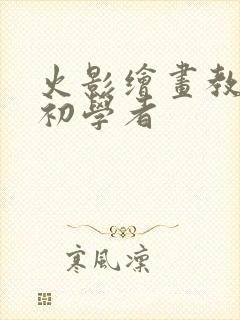 火影繪畫教
初學者
寒風凜